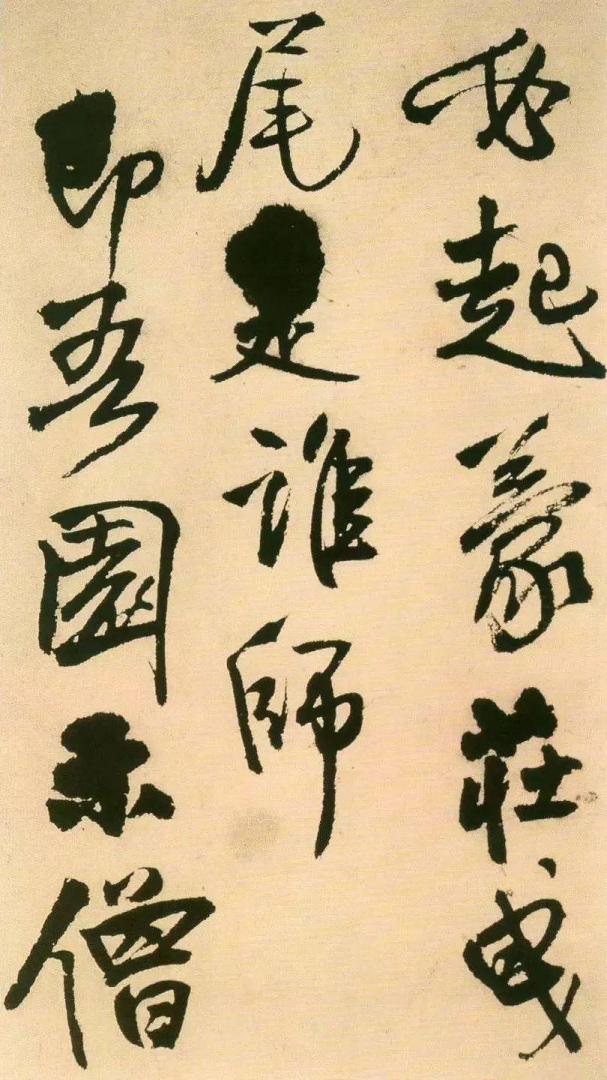 起蒙莊曳
尾是誰師
即吾園示僧